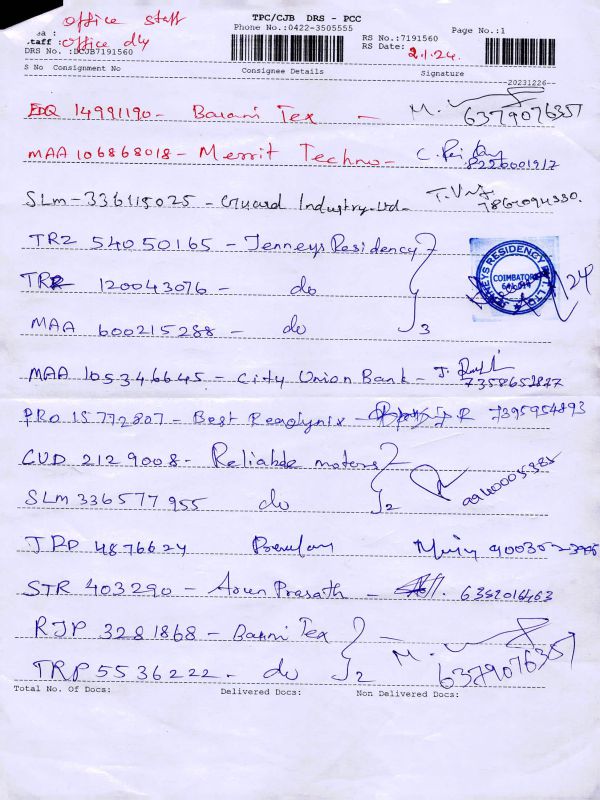 office staff
TPC/CJB DRS - PCC
Phone No.:0422-3505555
Page No.:1
ea :
taff : office dly
RS No.:7191560
RS Date: 2.1.24.
DRS No. :DCJB7191560
S No Consignment No Consignee Details Signature
20231226
EDQ 14991190 - Barani Tex - M. 6379076357
MAA 106868018 - Merrit Techno - C. 8220001917
SLm - 336115025 - Guard Industry Ltd - 7861094330.
TRZ 54050165 - Jenneys Residency
JENNEYS RESIDENCY PVT. LTD.
COIMBATORE
TRZ 120043076 - do
24
MAA 600215288 - do 3
MAA 105346645 - City Union Bank - J. 7358652877
PRO 15772807 - Best Readynix - R 7395954893
CUD 2129008 - Reliable motors
SLm 336577955 do 2
JPD 4876624
STR 403290 - Arun Prasath - 6352016463
RJP 3281868 - Barni Tex -
TRP 5536222 - do 2 M. 6379076357
Total No. Of Docs: Delivered Docs: Non Delivered Docs: